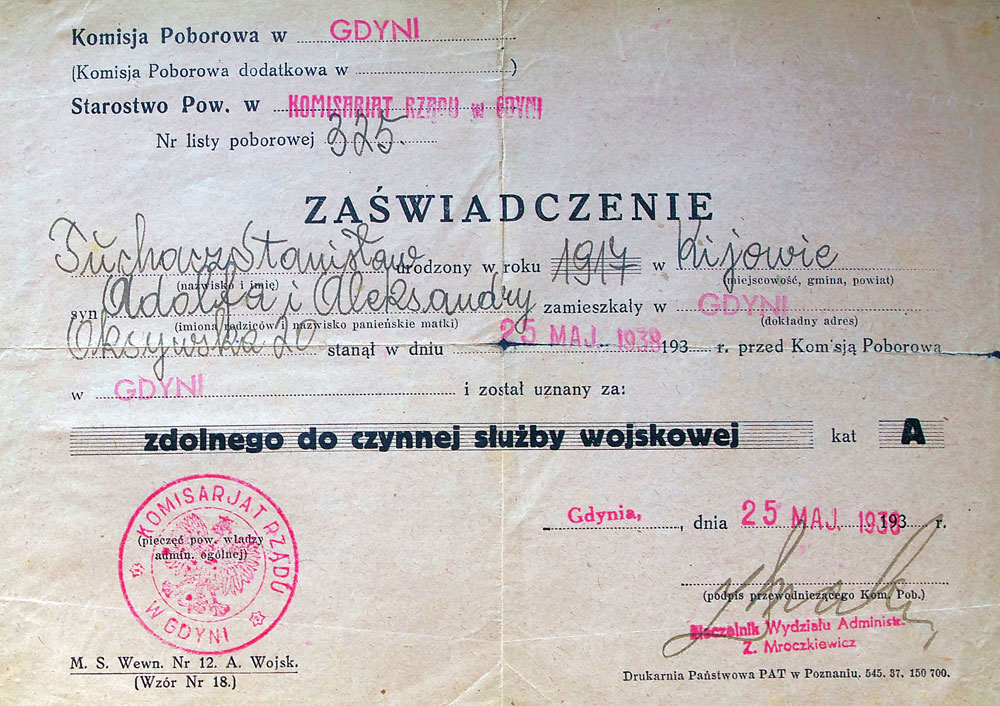 Komisja Poborowa w GDYNI
(Komisja Poborowa dodatkowa w )
Starostwo Pow. w KOMISARIAT RZĄDU w GDYNI
Nr listy poborowej 325.
ZAŚWIADCZENIE
Puchacz Stanisław urodzony w roku 1917 w Kijowie
(nazwisko i imię) (miejscowość, gmina, powiat)
syn Adolfa i Aleksandry zamieszkały w GDYNI
(imiona rodziców i nazwisko panieńskie matki) (dokładny adres)
Oksywska 20 stanął w dniu 25 MAJ. 1938 193 r. przed Kom'sją Poborową
w GDYNI i został uznany za:
zdolnego do czynnej służby wojskowej kat A
KOMISARJAT RZĄDU
W GDYNI
(pieczęć pow. władzy
admin. ogólnej)
Gdynia, dnia 25 MAJ. 1938 193 r.
(podpis przewodniczącego Kom. Pob.)
Naczelnik Wydziału Administr.
Z. Mroczkiewicz
M. S. Wewn. Nr 12. A. Wojsk.
(Wzór Nr 18.)
Drukarnia Państwowa PAT w Poznaniu. 545. 37. 150 700.